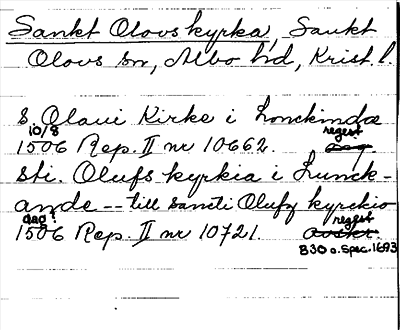 Sankt Olovs kyrka, Sankt
Olovs sn, Albo hd, Krist. l.
S. Olaui Kirke i Lonckinda
10/8 regest
1506 Rep. II nr 10662.
Sti. Olufs kyrkia i Lunck-
ande -- till Sancti Olufz kyrckio
dag? regest
1506 Rep. II nr 10721.
B30 o. Spec. 1693